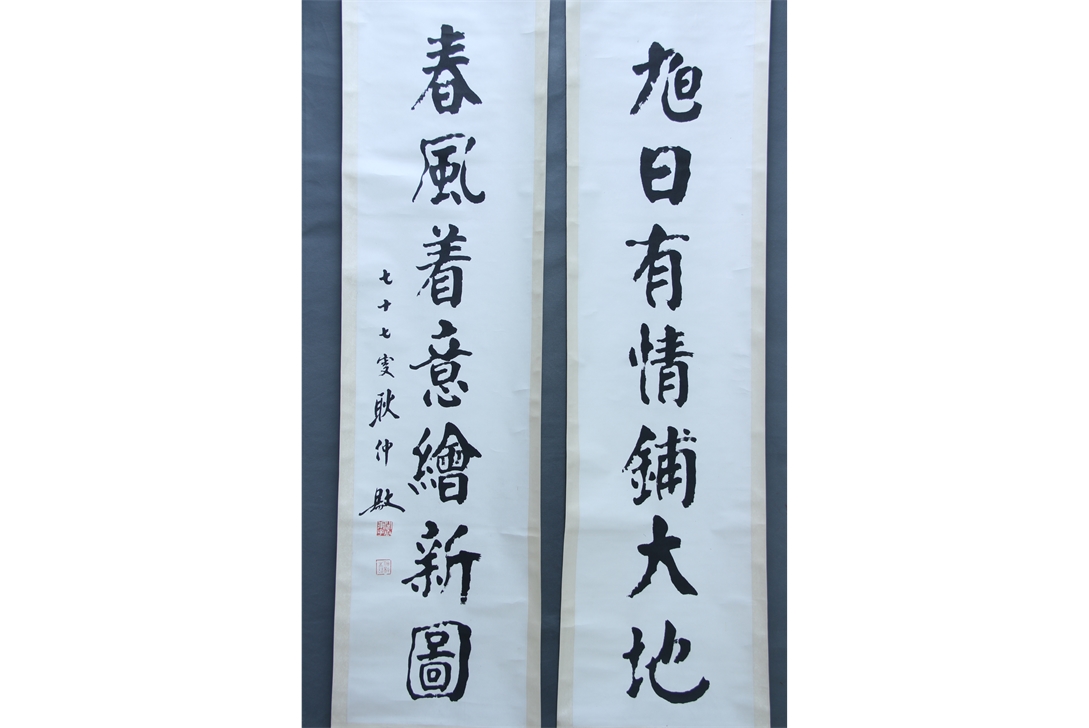 旭日有情鋪大地
春風着意繪新圖
七十七叟耿仲敭